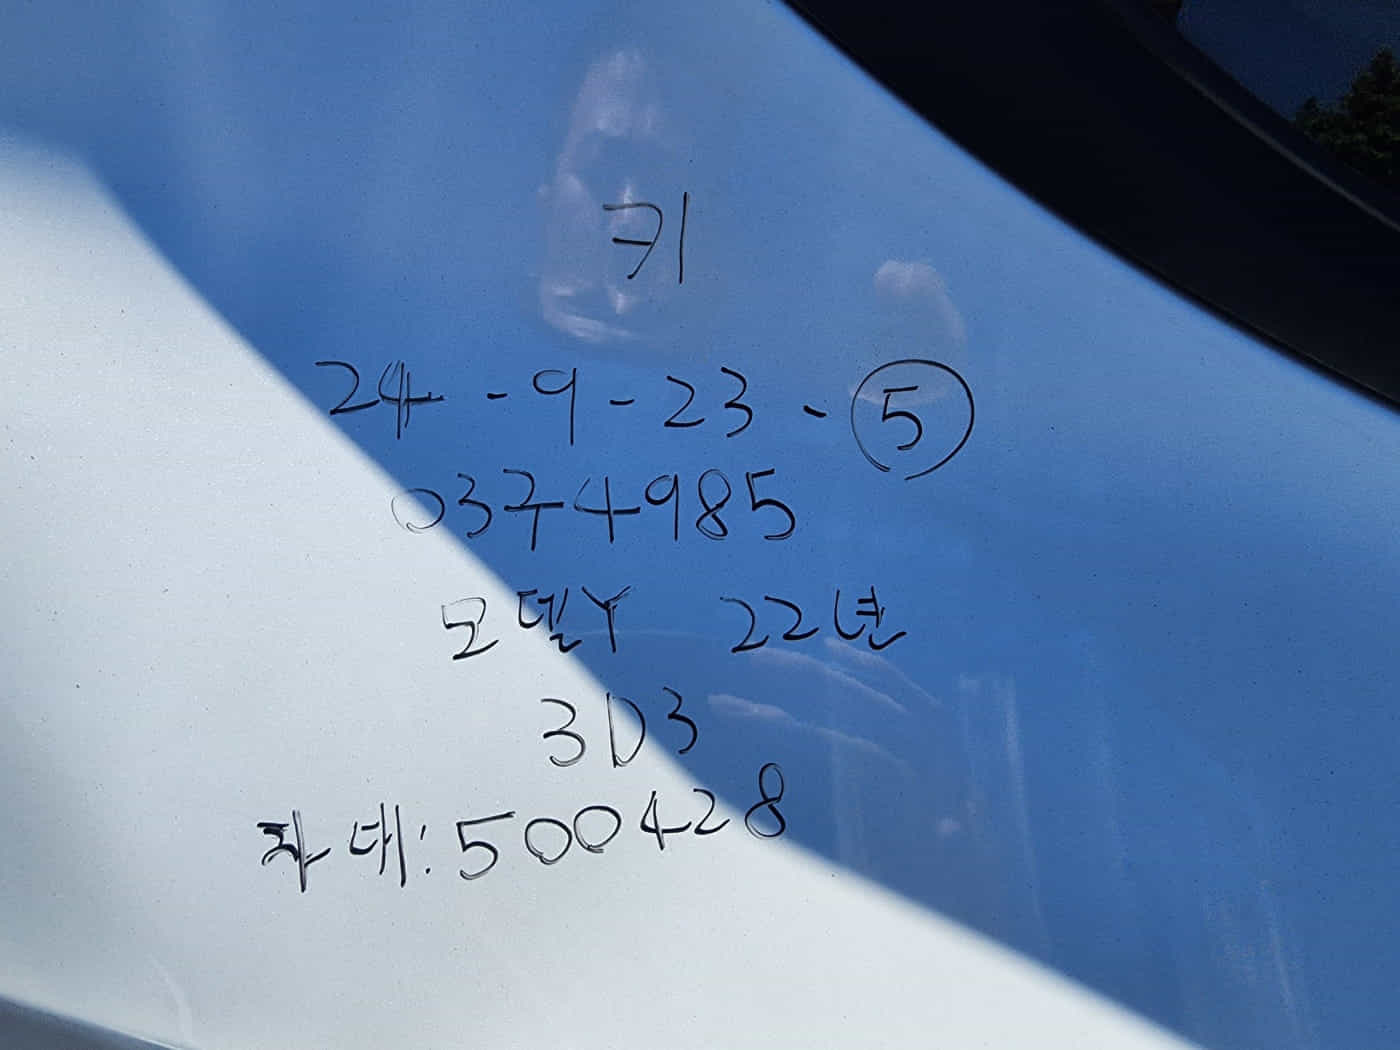 키
24-9-23-⑤
03구4985
모델Y 22년
3D3
차대:500428